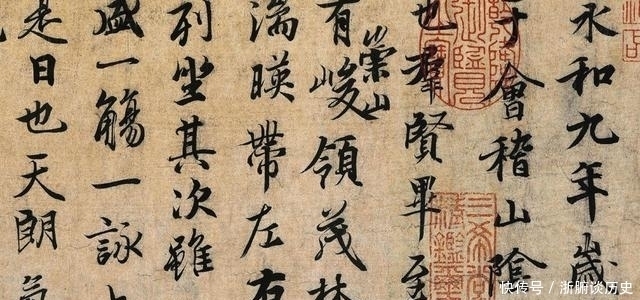 永和九年歲
于會稽山陰
也羣賢畢至
有崇山峻領茂林
湍暎帶左右
列坐其次雖
盛一觴一詠
是日也天朗氣
快传号 / 浙腑谈历史